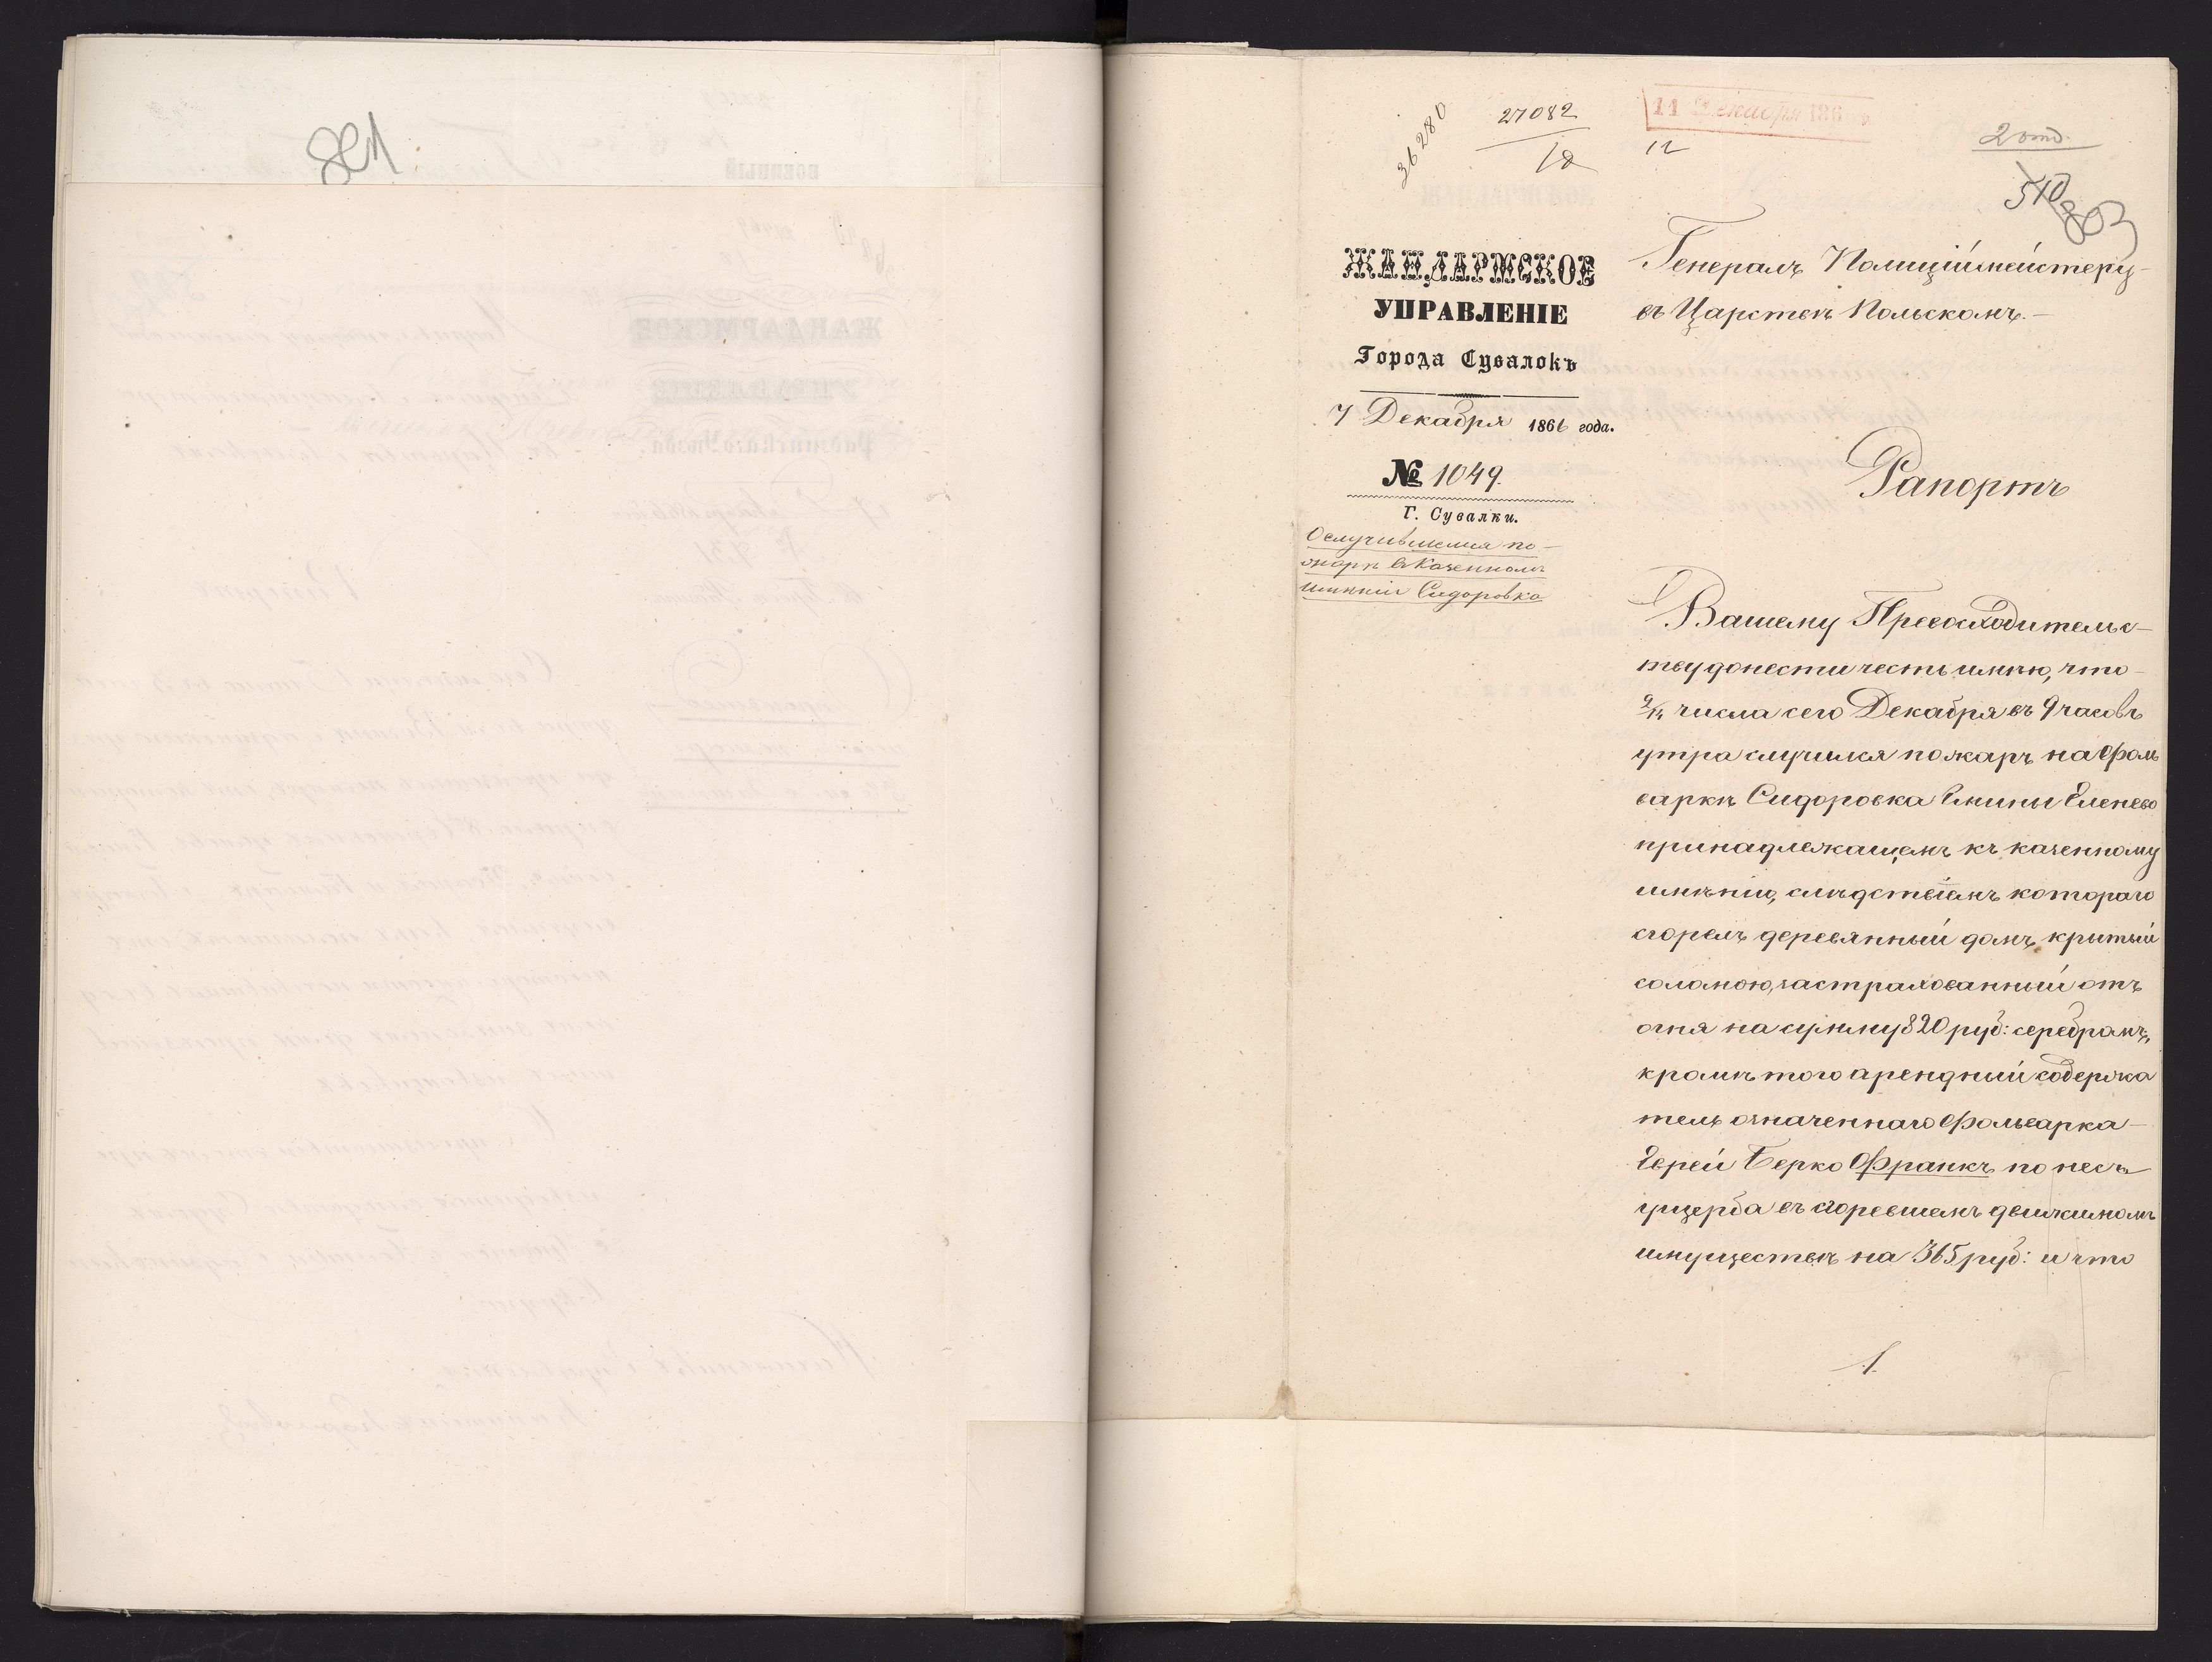 821
36280
27082
12
11 Декабря 186
12
2 отд.
510
803
ЖАНДАРМСКОЕ
УПРАВЛЕНІЕ
Города Сувалокъ
7 Декабря 1866 года.
№ 1049.
Г. Сувалки.
О случившемся по-
жаре въ Казенномъ
имѣніи Сидоровка
Генералъ Полиціймейстеру
въ Царствѣ Польскомъ.-
Рапортъ
Вашему Превосходительс-
тву донести честь имѣю, что
2/14 числа сего Декабря въ 9 часовъ
утра случился пожаръ на фоль
варкѣ Сидоровка Гмины Еленево
принадлежащемъ къ казенному
имѣнію, слѣдствіемъ котораго
сгорелъ деревянный домъ, крытый
соломою, застрахованный отъ
огня на сумму 820 руб: серебромъ,
кромѣ того арендный содержа
тель означеннаго фольварка-
Еврей Берко Франкъ понесъ
ущерба въ сгоревшемъ движимомъ
имуществѣ на 365 руб: и что
1.